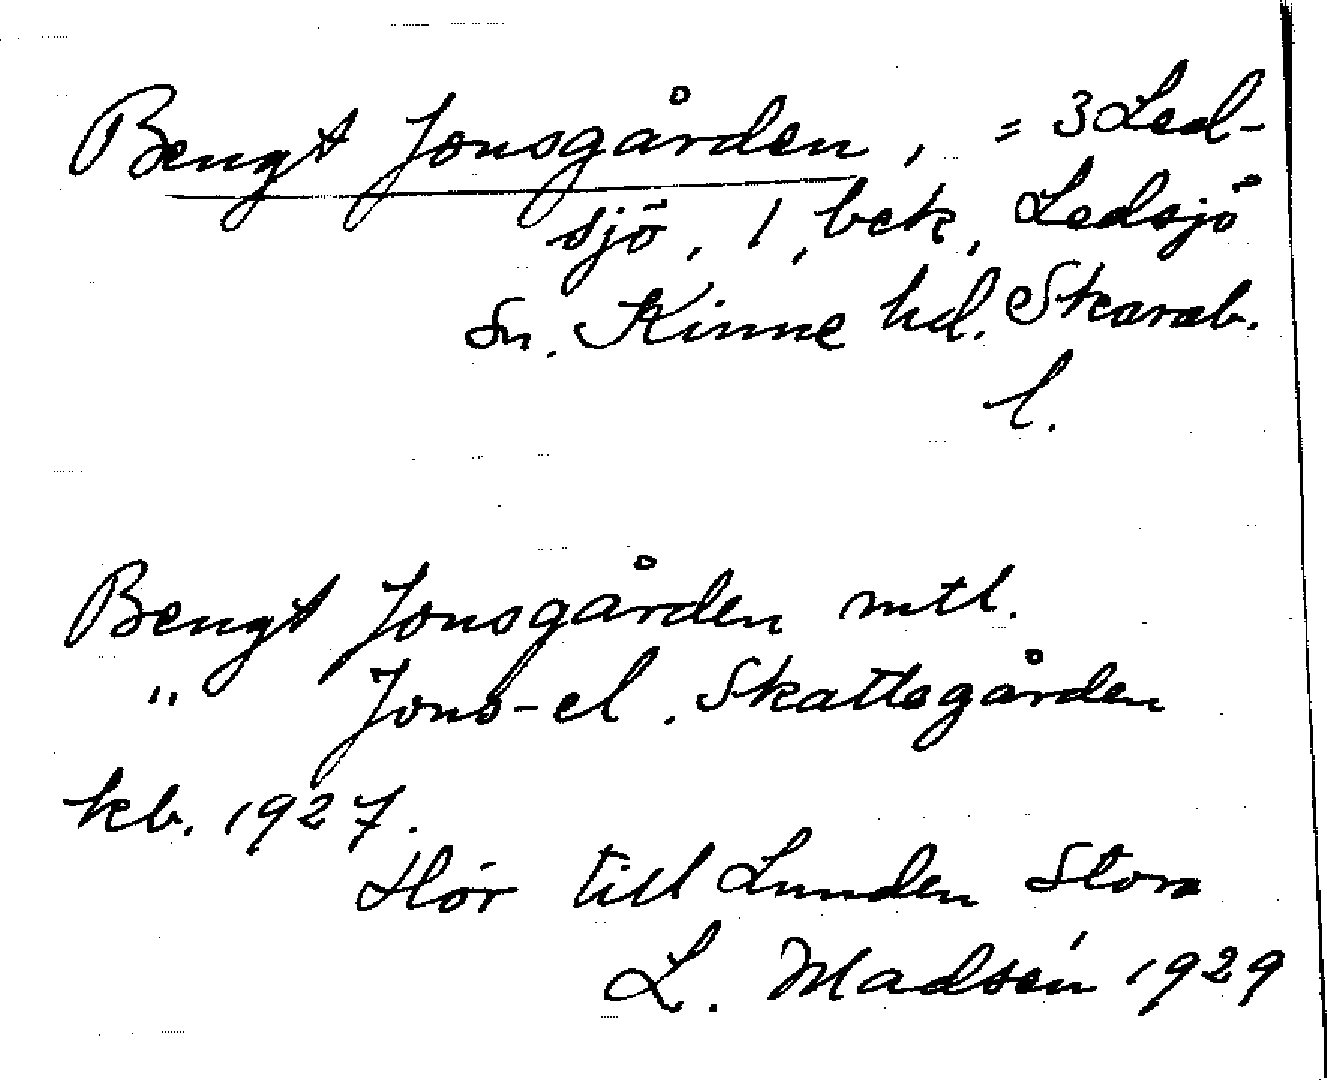 Bengt Jonsgården, = 3 Led-
sjö, 1, bek, Ledsjö
Sn. Kinne hd. Skarab.
l.
Bengt Jonsgården mtl.
" Jons- el. Skattegården
kb. 1927.
Hör till Lunden Stora
L. Madsén 1929